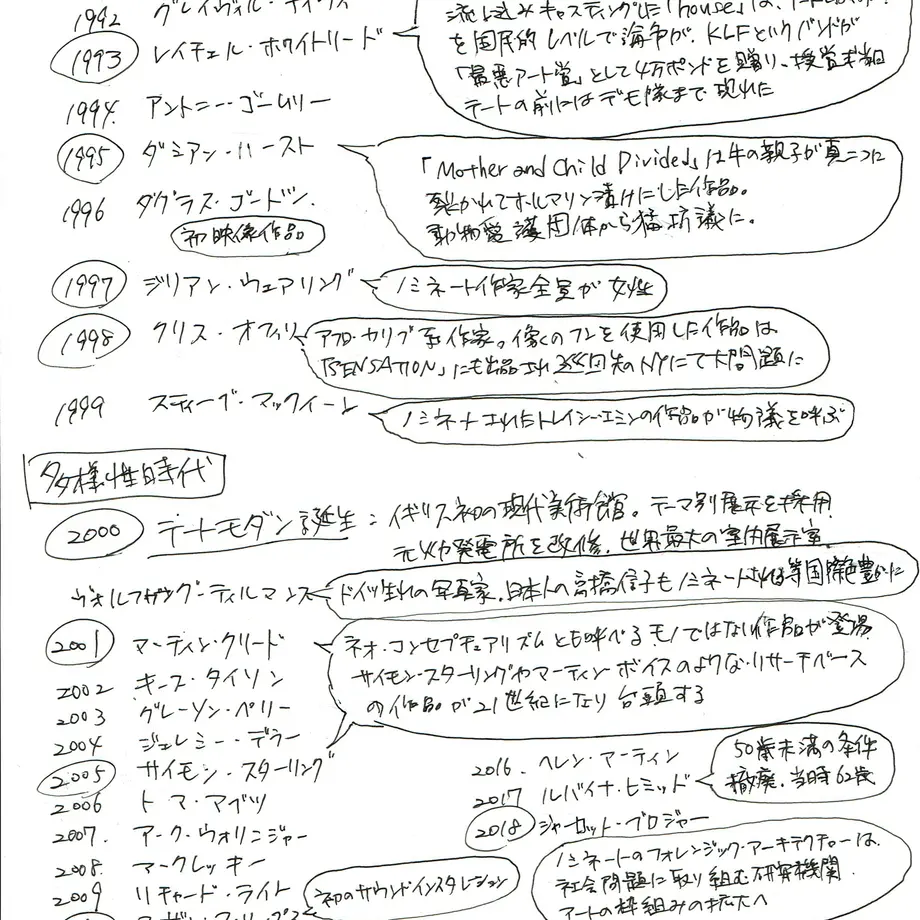 1992 グレイヴィル・デイヴィ
1993 レイチェル・ホワイトリード
流し込みキャスティングした「house」は、
を国民的レベルで論争が、KLFというバンドが
「最悪アート賞」として4万ポンドを贈り、授賞式当日
テートの前にはデモ隊まで現れた
1994. アントニー・ゴームリー
1995 ダミアン・ハースト
「Mother and Child Divided」は牛の親子が真二つに
裂かれてホルマリン漬けにした作品。
動物愛護団体から猛抗議に。
1996 ダグラス・ゴードン.
初映像作品
1997 ジリアン・ウェアリング
ノミネート作家全員が女性
1998 クリス・オフィリ
アフロ・カリブ系作家。像のフンを使用した作品は
「SENSATION」にも出品され巡回先のNYにて大問題に
1999 スティーブ・マックィーン
ノミネートされたトレイシー・エミンの作品が物議を呼ぶ
多様性時代
2000 テートモダン誕生：イギリス初の現代美術館。テーマ別展示を採用
元火力発電所を改修、世界最大の室内展示室
ヴォルフガング・ティルマンス
ドイツ生れの写真家、日本人の高橋信子もノミネートされる等国際色豊かに
2001 マーティン・クリード
ネオ・コンセプチュアリズムとも呼べるモノではない作品が登場
サイモン・スターリングやマーティン ボイスのようなリサーチベース
の作品が21世紀になり台頭する
2002 キース・タイソン
2003 グレーソン・ペリー
2004 ジェレミー・デラー
2005 サイモン・スターリング
2006 トマ・アブツ
2007. マーク・ウォリンジャー
2008. マークレッキー
2009 リチャード・ライト
初のサウンドインスタレーション
スーザン・フィリップス
2016. ヘレン・マーティン
2017 ルバイナ・ヒミッド
50歳未満の条件
撤廃。当時62歳
2018 シャーロット・プロジャー
ノミネートのフォレンジック・アーキテクチャーは、
社会問題に取り組む研究機関
アートの枠組みの拡大へ